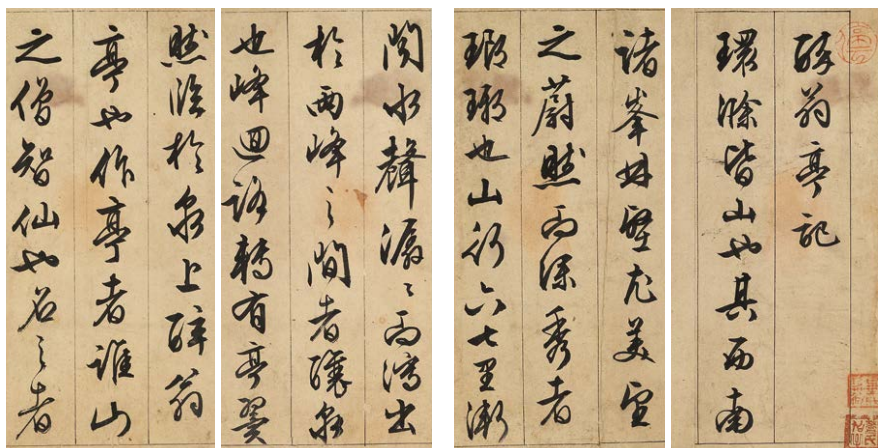 醉翁亭記
環滁皆山也其西南
諸峯林壑尤美望
之蔚然而深秀者
瑯琊也山行六七里漸
聞水聲潺〻而瀉出
於兩峰之間者釀泉
也峰迴路轉有亭翼
然臨於泉上醉翁
亭也作亭者誰山
之僧智仙也名之者